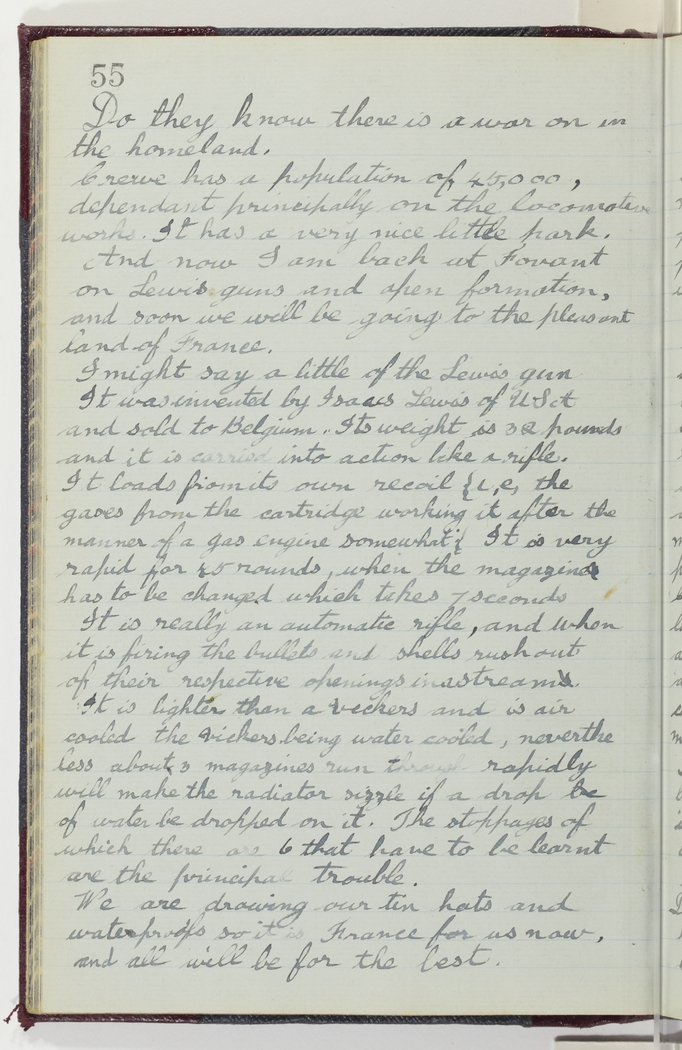 55
Do they know there is a war on in
the homeland.
Crewe has a population of 45,000,
dependant principally on the locomotive
works. It has a very nice little park.
And now I am back at Fovant
on Lewis guns and open formation,
and soon we will be going to the pleasant
land of France.
I might say a little of the Lewis gun
It was invented by Isaacs Lewis of USA
and sold to Belgium. Its weight is 32 pounds
and it is carried into action like a rifle.
It loads from its own recoil {i,e, the
gases from the cartridge working it after the
manner of a gas engine somewhat} It is very
rapid for 45 rounds, when the magazine
has to be changed which takes 7 seconds
It is really an automatic rifle, and when
it is firing the bullets and shells rush out
of their respective openings in a stream.
It is lighter than a Vickers and is air
cooled the Vickers being water cooled, neverthe
less about 3 magazines run through rapidly
will make the radiator sizzle if a drop be
of water be dropped on it. The stoppages of
which there are 6 that have to be learnt
are the principal trouble.
We are drawing our tin hats and
waterproofs so it is France for us now,
and all will be for the best.